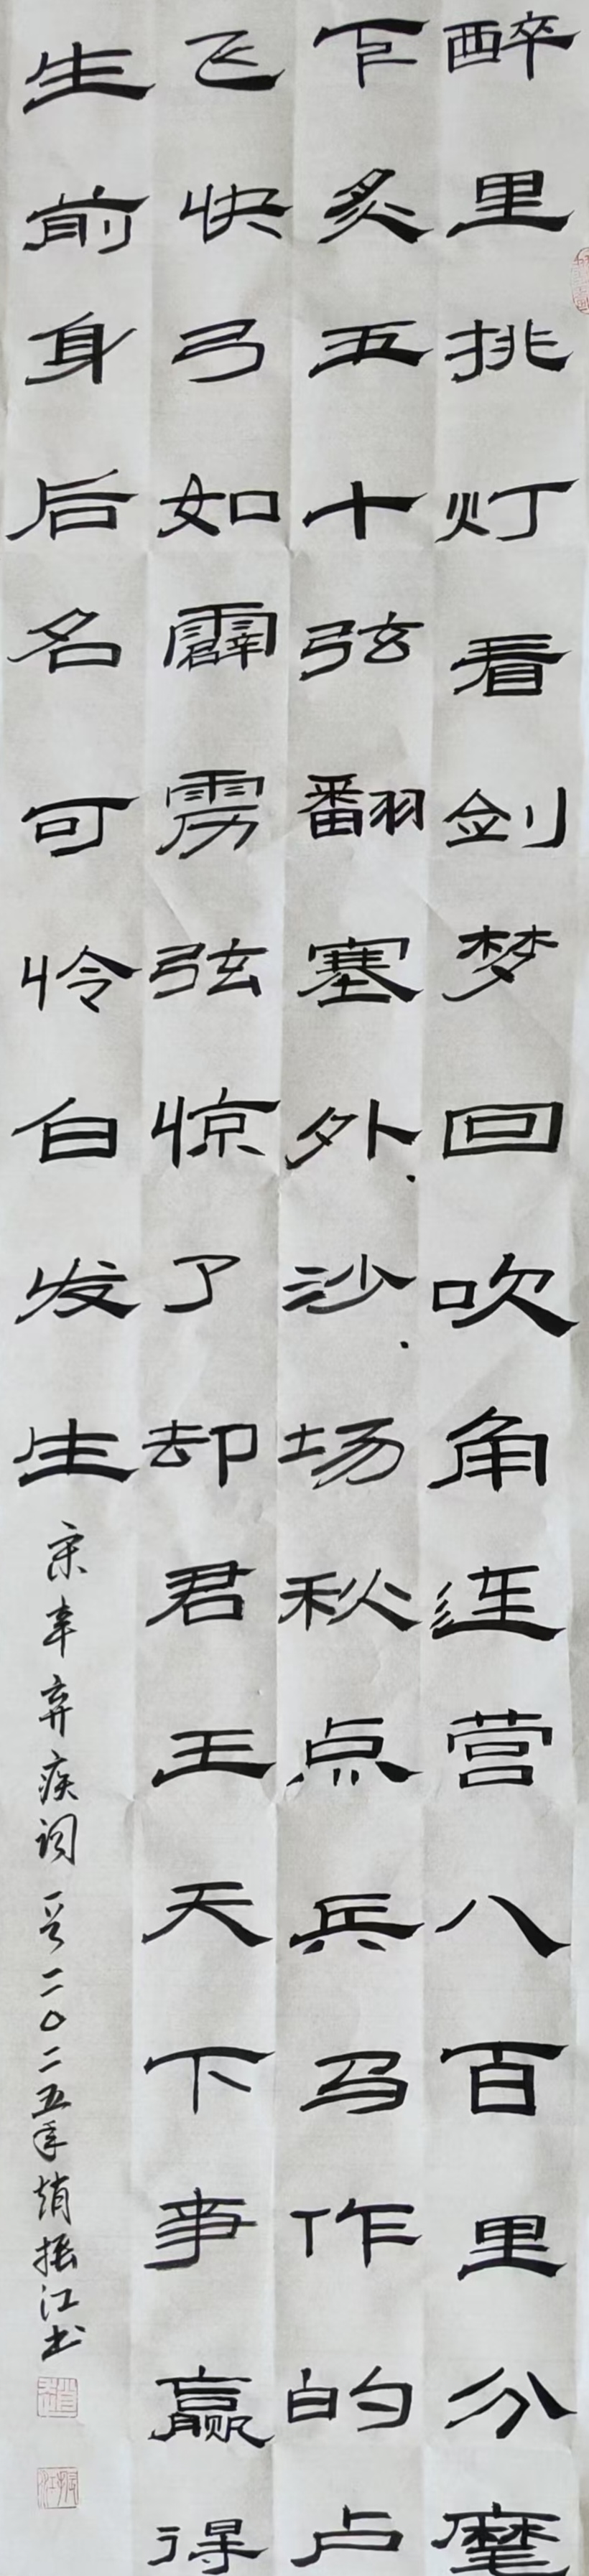 醉里挑灯看剑梦回吹角连营八百里分麾
炙五十弦翻塞外沙场秋点兵马作的卢
飞快弓如霹雳弦惊了却君王天下事赢得
生前身后名可怜白发生
宋辛弃疾词一首二〇二五年趙振江书